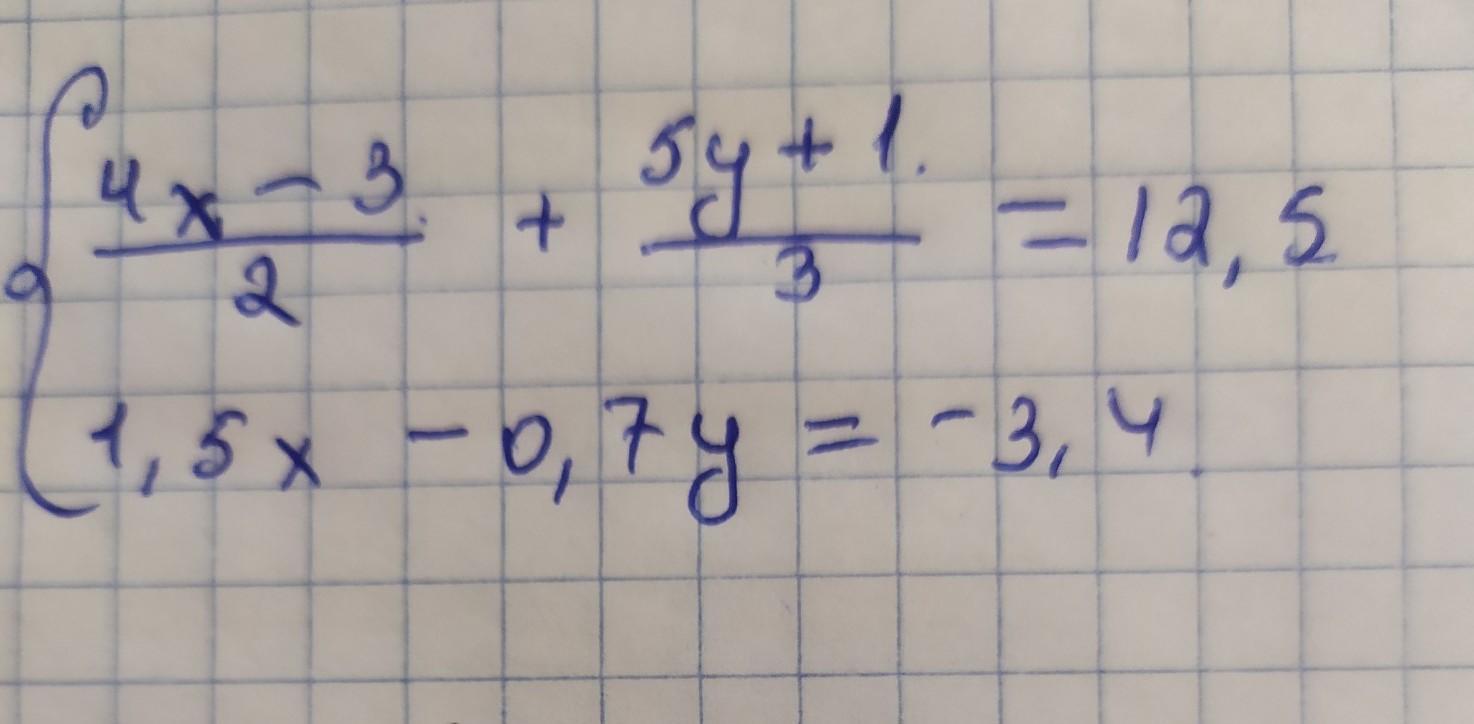 { (4x - 3)/2 + (5y + 1)/3 = 12,5
1,5x - 0,7y = -3,4